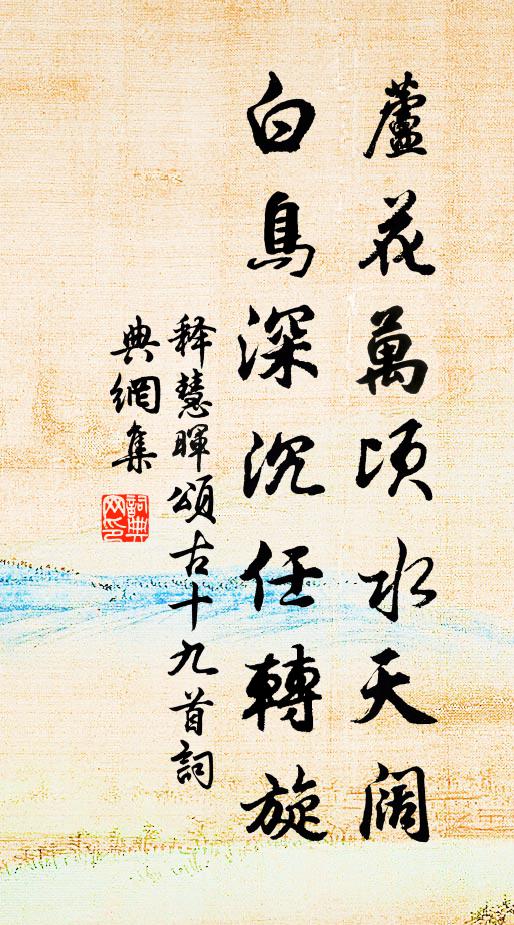 蘆花萬頃水天阔
白鳥深沉任轉旋
釋慧暉頌古十九首詞
典網集
詞典網印